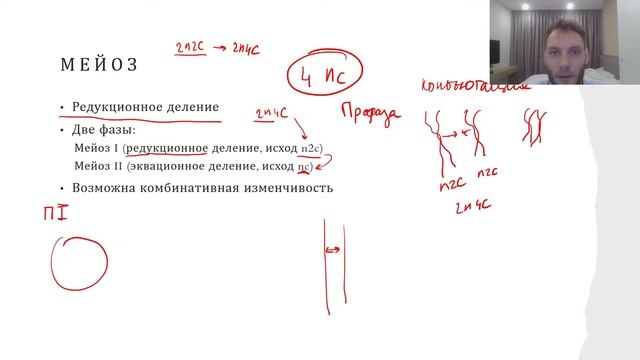 2n2c → 2n4c
МЕЙОЗ
4 nc
Конъюгация
• Редукционное деление
2n4c
Профаза
• Две фазы:
Мейоз I (редукционное деление, исход n2c)
Мейоз II (эквационное деление, исход nc)
n2c n2c
• Возможна комбинативная изменчивость
2n4c
П I